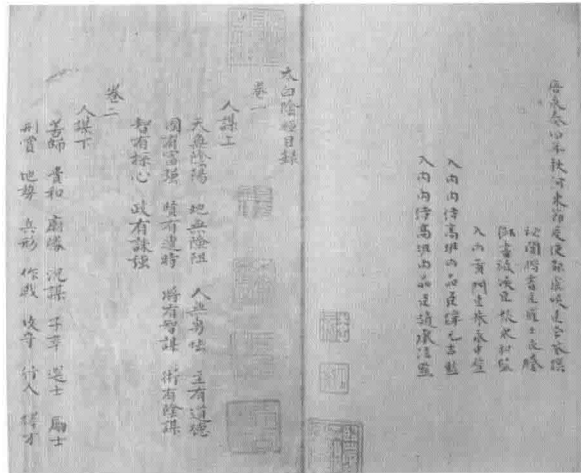 唐永泰四年秋河東節度使都虞候臣李筌撰
秘閣楷書臣羅士良謄
御書祗候臣張永和監
入內黃門臣朱永中監
入內內侍高班內品臣譚元吉監
入內內侍高班內品臣趙承信監
太白陰經目錄
卷一
人謀上
天無陰陽 地無險阻 人無勇怯 主有道德
國有富强 賢有遇時 將有智謀 術有陰謀
智有探心 政有誅强
卷二
人謀下
善師 貴和 廟勝 沉謀 子卒 選士 勵士
刑賞 地勢 兵形 作戰 攻守 行人 才